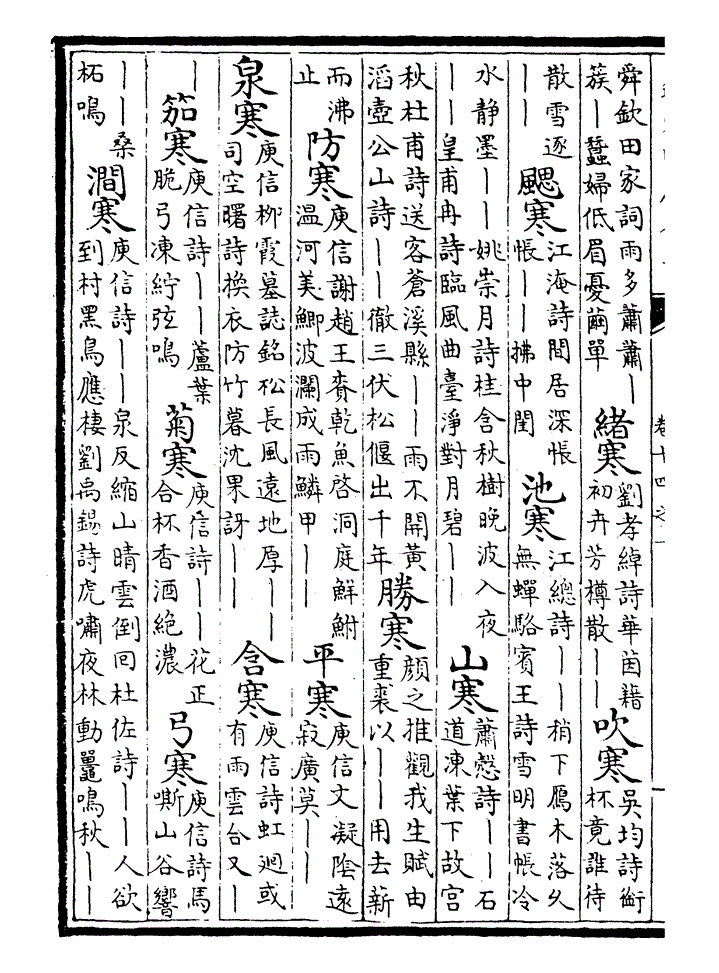 卷十四之一
舜欽田家詞雨多蕭蕭丨
簇丨蠶婦低眉憂繭單
緒寒
劉孝綽詩華茵藉
初卉芳樽散丨丨
吹寒
吳均詩銜
杯竟誰待
散雪逐
丨丨
颸寒
江淹詩閒居深帳
帳丨丨拂中閨
池寒
江總詩丨丨稍下鴈木落久
無蟬駱賓王詩雪明書帳冷
水静墨丨丨姚崇月詩桂含秋樹晚波入夜
丨丨皇甫冉詩臨風曲臺淨對月碧丨丨
山寒
蕭慤詩丨丨石
道凍葉下故宫
秋杜甫詩送客蒼溪縣丨丨雨不開黃
滔壺公山詩丨丨徹三伏松偃出千年
勝寒
顔之推觀我生賦由
重裘以丨丨用去薪
而沸
止
防寒
庾信謝趙王賚乾魚啓洞庭鮮鮒
温河美鯽波瀾成雨鱗甲丨丨
平寒
庾信文凝陰遠
寂廣莫丨丨
泉寒
庾信柳霞墓誌銘松長風遠地厚丨丨
司空曙詩換衣防竹暮沈果訝丨丨
含寒
庾信詩虹迴或
有雨雲合又丨
丨
笳寒
庾信詩丨丨蘆葉
脆弓凍紵弦鳴
菊寒
庾信詩丨丨花正
合杯香酒絶濃
弓寒
庾信詩馬
嘶山谷響
丨丨桑
柘鳴
澗寒
庾信詩丨丨泉反縮山晴雲倒回杜佐詩丨丨人欲
到村黑鳥應棲劉禹錫詩虎嘯夜林動鼉鳴秋丨丨